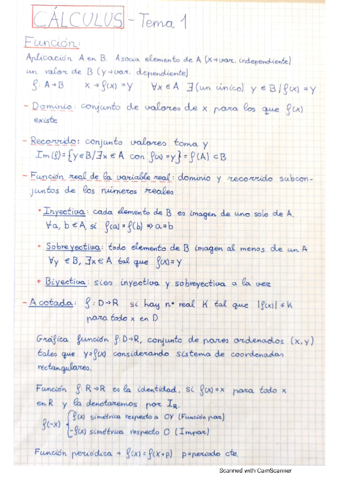 CÁLCULUS - Tema 1
Función:
Aplicación A en B. Asocia elemento de A (x→var. independiente)
un valor de B (y→var. dependiente)
f: A→B x→f(x)=y ∀x ∈ A ∃(un único) y ∈ B / f(x)=y
- Dominio: conjunto de valores de x para los que f(x)
existe
- Recorrido: conjunto valores toma y
Im(f)={y∈B/∃x∈A con f(x)=y}=f(A)⊂B
- Función real de la variable real: dominio y recorrido subcon-
juntos de los números reales
• Inyectiva: cada elemento de B es imagen de uno solo de A.
∀a, b ∈ A, si f(a)=f(b) ⇒ a=b
• Sobreyectiva: todo elemento de B imagen al menos de un A
∀y ∈ B, ∃x ∈ A tal que f(x)=y
• Biyectiva: sien inyectiva y sobreyectiva a la vez
- Acotada: f: D→R si hay nº real K tal que |f(x)| ≤ K
para todo x en D
Gráfica función f: D→R, conjunto de pares ordenados (x,y)
tales que y=f(x) considerando sistema de coordenadas
rectangulares.
Función f: R→R es la identidad, si f(x)=x para todo x
en R y la denotaremos por I_R.
f(-x) { f(x) simétrica respecto a OY (Función par)
-f(x) simétrica respecto O (Impar)
Función periódica → f(x)=f(x+p) p=periodo cte.
Scanned with CamScanner